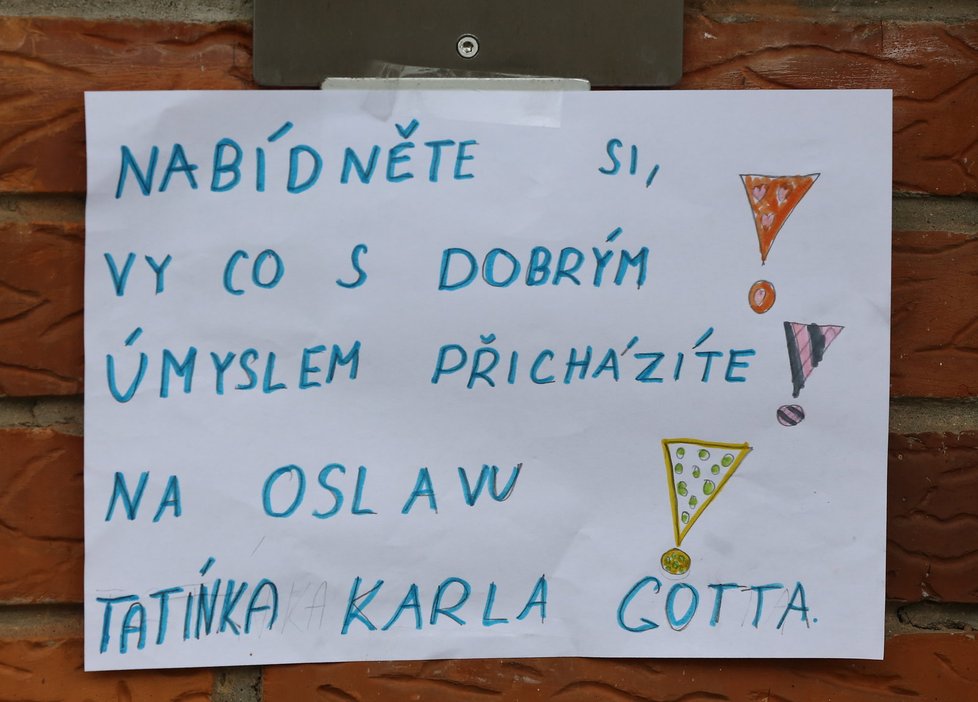 NABÍDNĚTE SI,
VY CO S DOBRÝM
ÚMYSLEM PŘICHÁZÍTE
NA OSLAVU
TATÍNKA KARLA GOTTA.